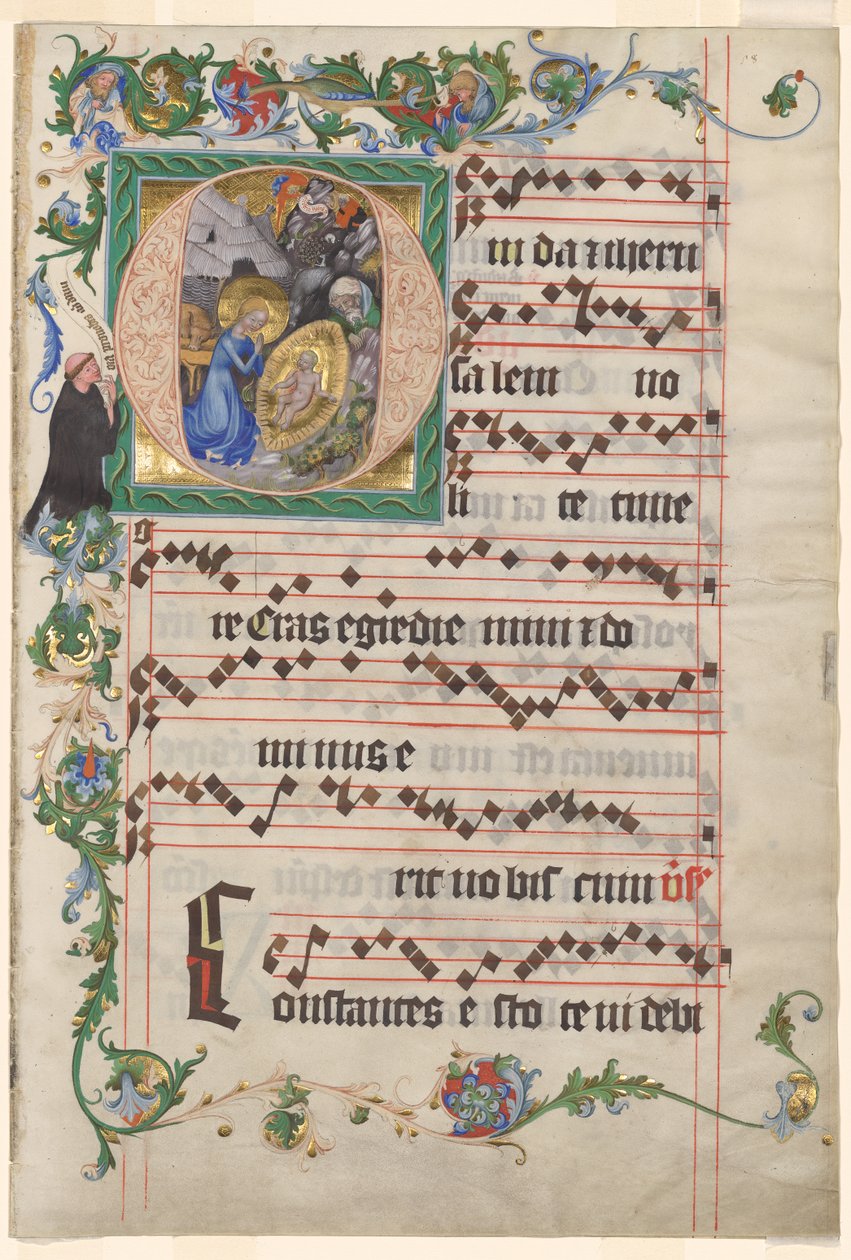 O iu da ⁊ iheru
sa lem no
li te time
re Cras egredie mini ⁊ do
mi nus e
rit vo bis cum v̄s
Constantes e sto te vi debi